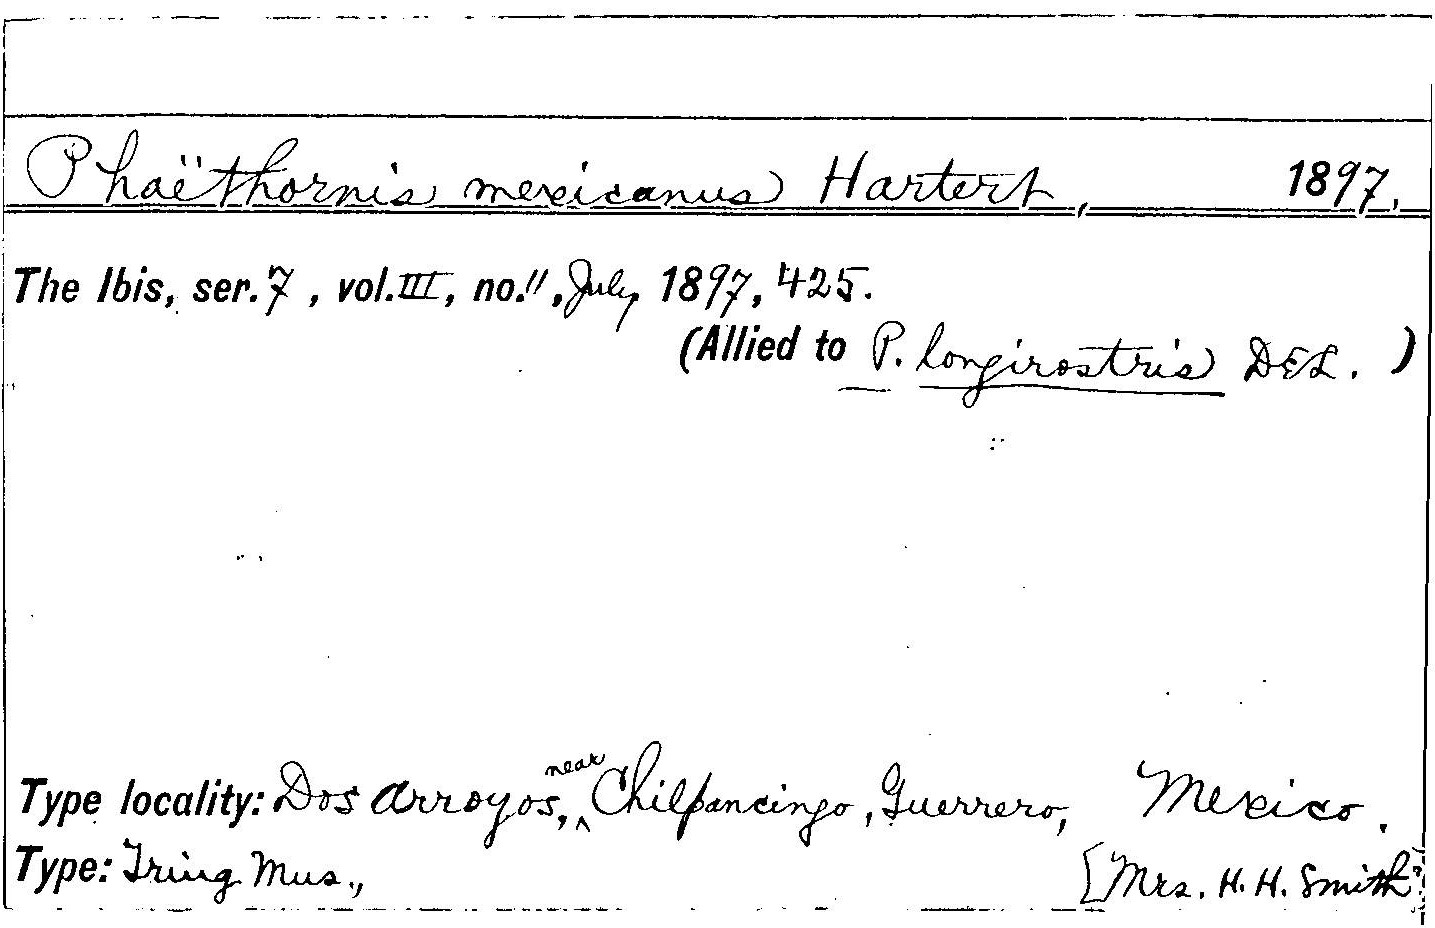 Phaëthornis mexicanus Hartert, 1897.
The Ibis, ser. 7, vol. III, no. 11, July 1897, 425.
(Allied to P. longirostris DEL. )
Type locality: Dos Arroyos, near Chilpancingo, Guerrero, Mexico.
Type: Tring Mus., [Mrs. H. H. Smith